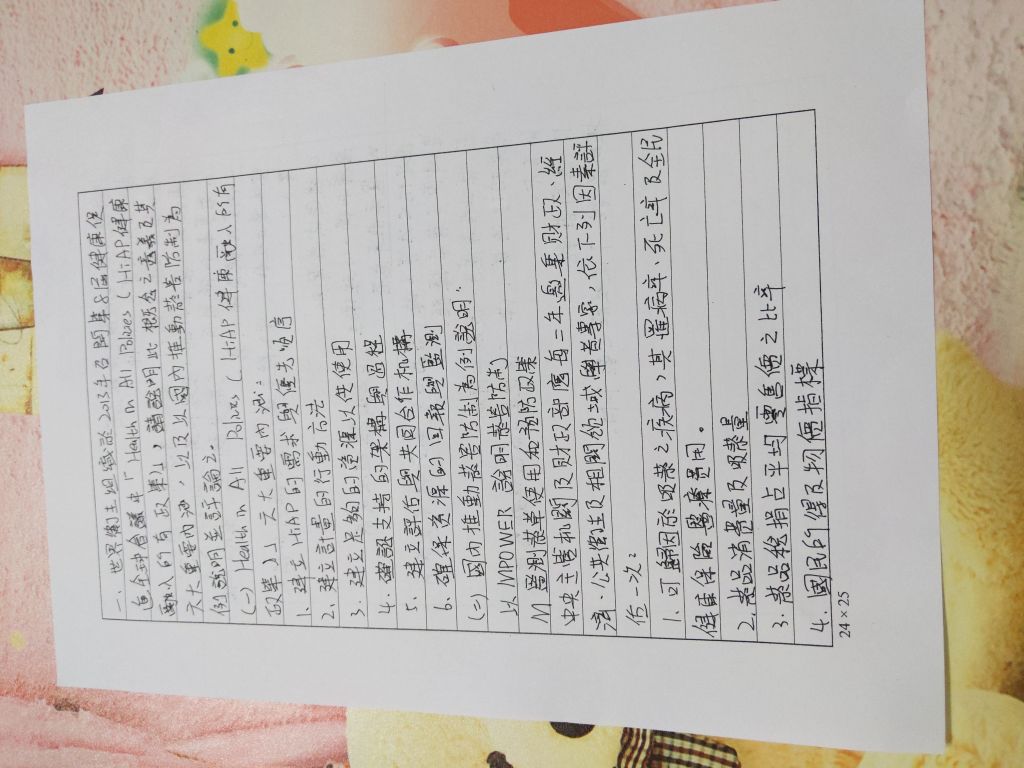 一、世界衛生組織於2013年召開第8屆健康促
進全球會議中「Health in All Policies (HiAP健康
融入所有政策)」,請說明此概念之意義及其
六大重要內涵,以及以國內推動菸害防制為
例說明並評論之。
(一) Health in All Policies (HiAP健康融入所有
政策)」六大重要內涵:
1. 建立HiAP的需求與優先順序
2. 建立計畫的行動方法
3. 建立足夠的資源以供使用
4. 確認支持的架構與過程
5. 建立評估與共同合作和機
6. 確保資源的回報與監測
(二) 國內推動菸害防制為例說明:
以MPOWER 說明菸害防制
M 監測菸草使用和預防政策
中央主管機關及財政部應每二年邀集財政、經
濟、公共衛生及相關領域學者專家,依下列因素評
估一次:
1. 可歸因於吸菸之疾病,其罹病率、死亡率及全民
健康保險醫療費用。
2. 菸品消費量及吸菸量
3. 菸品稅捐占平均零售價之比率
4. 國民所得及物價指標
24×25